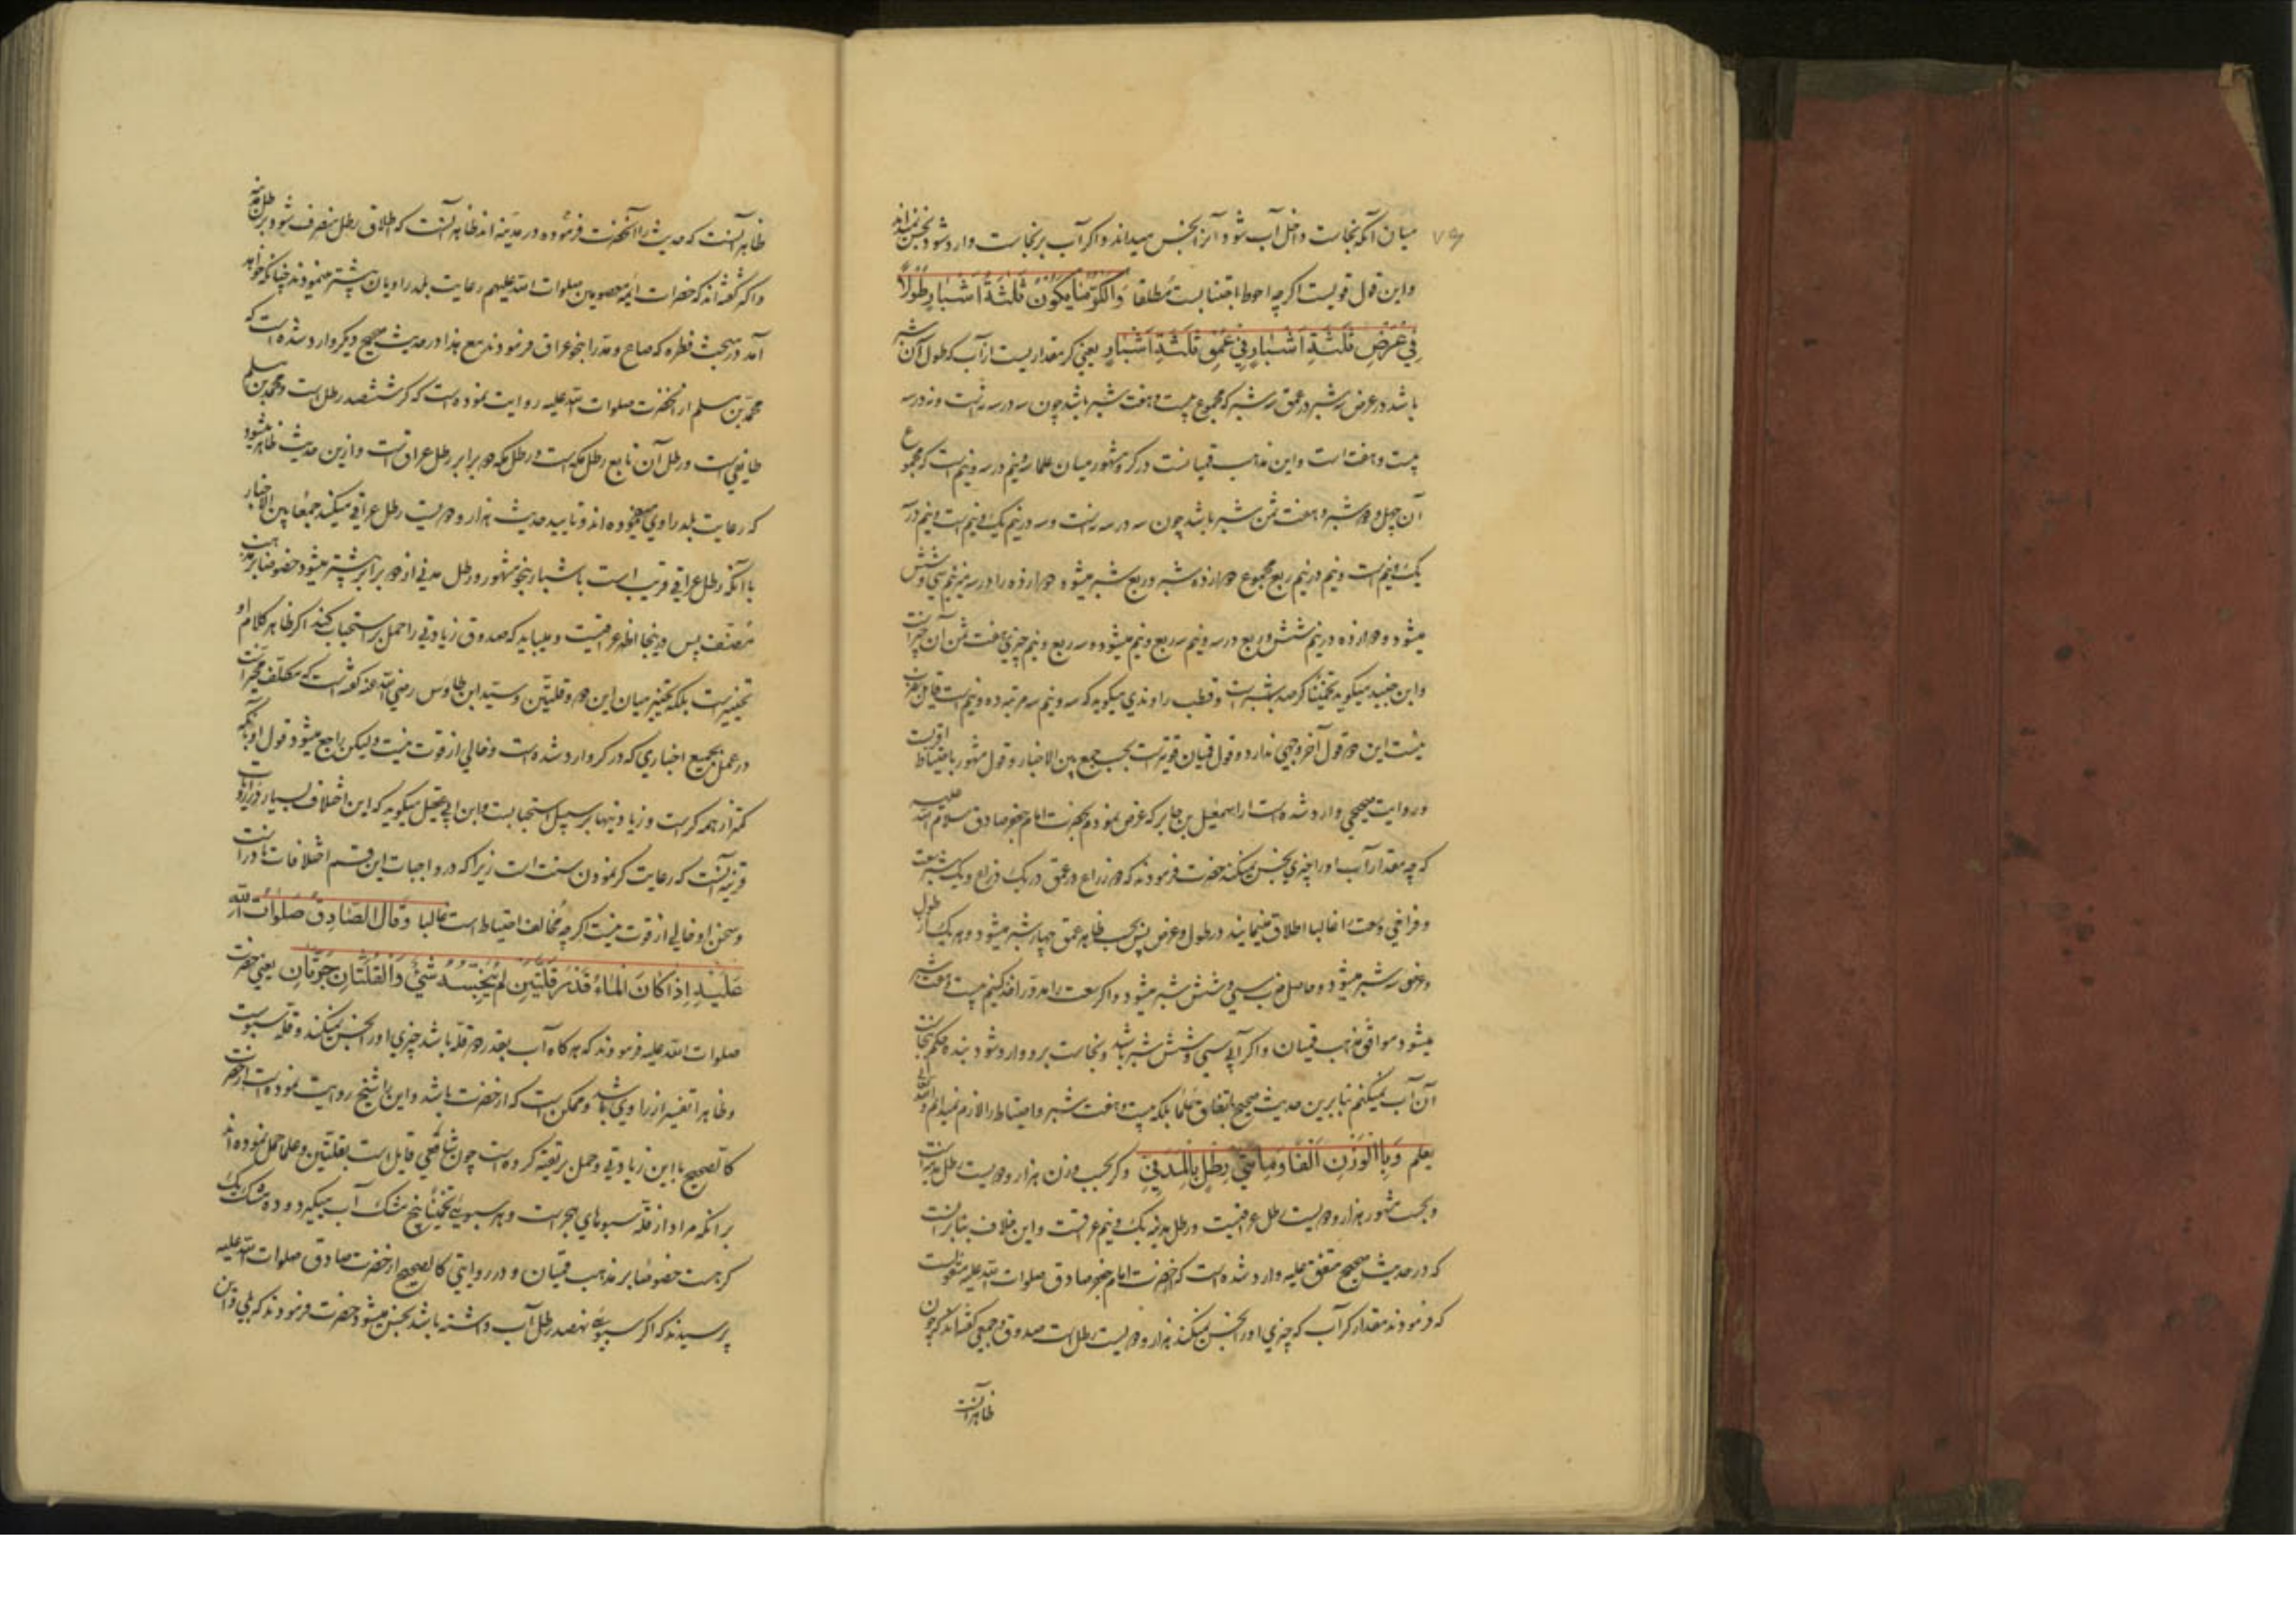 ۷۹
میان آنکه نجاست داخل آب شود آنرا نجس میداند و اگر آب بر نجاست وارد شود نجس نمیداند
و این قول قویست اگرچه احوط اجتنابست مطلقا وَالکرّ مَا یَکُونُ ثَلٰثَةَ اَشْبَارٍ طُولاً
فِی عَرْضِ ثَلٰثَةِ اَشْبَارٍ فِی عُمْقِ ثَلٰثَةِ اَشْبَارٍ یعنی کر مقداریست از آب که طول آن سه شبر
باشد در عرض سه شبر در عمق سه شبر که مجموع بیست و هفت شبر باشد چون سه در سه نه است و نه در سه
بیست و هفت است و این مذهب قمیانست در کر و مشهور میان علما سه و نیم در سه و نیم است که مجموع
آن چهل و دو شبر و هفت ثمن شبر باشد چون سه در سه نه است و سه در نیم یک و نیم است و نیم در سه
یک و نیم است و نیم در نیم ربع مجموع دوازده شبر و ربع شبر میشود دوازده را در سه میزنیم سی و شش
میشود و دوازده در نیم شش و ربع در سه و نیم سه ربع و نیم میشود و سه ربع و نیم چیزی هفت ثمن آن چیز است
و ابن جنید میگوید تخمینا کر صد شبر است و قطب راوندی میگوید که سه و نیم سه مرتبه ده و نیم است قایل بضرب
نیست این دو قول آخر وجهی ندارد و قول قمیان قویتر است بحسب جمع بین الاخبار و قول مشهور باحتیاط اقربست
و روایت صحیحی وارد شده است از اسمعیل بن جابر که عرض نمودم بحضرت امام جعفر صادق سلام الله علیه
که چه مقدار آب را چیزی نجس نمیکند حضرت فرمودند که دو ذراع در عمق در یک ذراع و یک شبر سعت
و فراخی وسعت را غالبا اطلاق مینمایند در طول و عرض پس بحسب ظاهر عمق چهار شبر میشود و هر یک از طول
و عرض سه شبر میشود و حاصل ضرب سی و شش شبر میشود و اگر سعت را مدور اخذ کنیم بیست و هفت شبر
میشود موافق مذهب قمیان و اگر آبی سی و شش شبر باشد و نجاست برو وارد شود بنده حکم بنجاست
آن آب نمیکنم بنابرین حدیث صحیح باتفاق علما بلکه بیست و هفت شبر و احتیاط را لازم نمیدانم والله تعالی
یعلم وَبِالْوَزْنِ اَلْفٌ وَمِأَتٰی رِطْلٍ بِالْمَدَنِیِّ و کر بحسب وزن هزار و دویست رطل مدنیست
و بحسب مشهور هزار و دویست رطل عراقیست و رطل مدنی یک و نیم عراقیست و این خلاف بنابر آنست
که در حدیث صحیح متفق علیه وارد شده است که از حضرت امام جعفر صادق صلوات الله علیه منقولست
که فرمودند مقدار کر آب که چیزی او را نجس نمیکند هزار و دویست رطل است صدوق و جمعی گفته‌اند که چون
ظاهر آنست
ظاهر آنست که حدیث را آنحضرت فرموده در مدینه اند ظاهر آنست که اطلاق رطل منصرف شود برطل مدینه
و اکثر گفته‌اند که حضرات ائمه معصومین صلوات الله علیهم رعایت بلد راویان بیشتر مینمودند چنانکه خواهد
آمد در مبحث فطره که صاع و مد را بنحو عراق فرمودند مع هذا در حدیث صحیح دیگر وارد شده است که
محمد بن مسلم از آنحضرت صلوات الله علیه روایت نموده است که کر ششصد رطل است و محمد بن مسلم
طایفی است و رطل آن تابع رطل مکه است و رطل مکه دو برابر رطل عراق است و ازین حدیث ظاهر میشود
که رعایت بلد راوی مینموده‌اند و تایید حدیث هزار و دویست رطل عراقی میکند جمعا بین الاخبار
با آنکه رطل عراقی قریب است باشبار بنحو مشهور و رطل مدنی از دو برابر بیشتر میشود خصوصا بر مذهب
مصنف پس در اینجا اظهر عراقیست و میباید که صدوق زیادتی را حمل بر استحباب کند اگر ظاهر کلام او
تخییر است بلکه تخییر میان این دو و قلتین و سید ابن طاوس رضی الله عنه گفته است که مکلف مخیر است
در عمل بجمیع اخباری که در کر وارد شده است و خالی از قوت نیست ولیکن راجع میشود قول او بآنکه
کمتر از همه کر است و زیادتیها بر سبیل استحبابست و ابن ابی عقیل میگوید که این اختلاف بسیار در روایات
قرینه آنست که رعایت کر نمودن سنت است زیرا که در واجبات این قسم اختلافات نادر است
و سخن او خالی از قوت نیست اگرچه مخالف احتیاط است غالبا وَقَالَ الصَّادِقُ صَلَوَاتُ اللّٰهِ
عَلَیْهِ اِذَا کَانَ الْمَاءُ قَدْرَ قُلَّتَیْنِ لَمْ یُنَجِّسْهُ شَیْءٌ وَالْقُلَّتَانِ جَرَّتَانِ یعنی حضرت
صلوات الله علیه فرمودند که هرگاه آب بقدر دو قله باشد چیزی او را نجس نمیکند و قله سبوست
و ظاهرا تفسیر از راوی باشد و ممکن است که از حضرت باشد و این را شیخ روایت نموده است از حضرت
کالصحیح با این زیادتی و حمل بر تقیه کرده است چون شافعی قایل است بقلتین و علما حمل نموده‌اند
بر آنکه مراد از قله سبوهای هجر است و هر سبویی تخمینا پنج مشک آب میگیرد و ده مشک یک
کر هست خصوصا بر مذهب قمیان و در روایتی کالصحیح از حضرت صادق صلوات الله علیه
پرسیدند که اگر سبویی نهصد رطل آب داشته باشد نجس میشود حضرت فرمودند که بلی و این